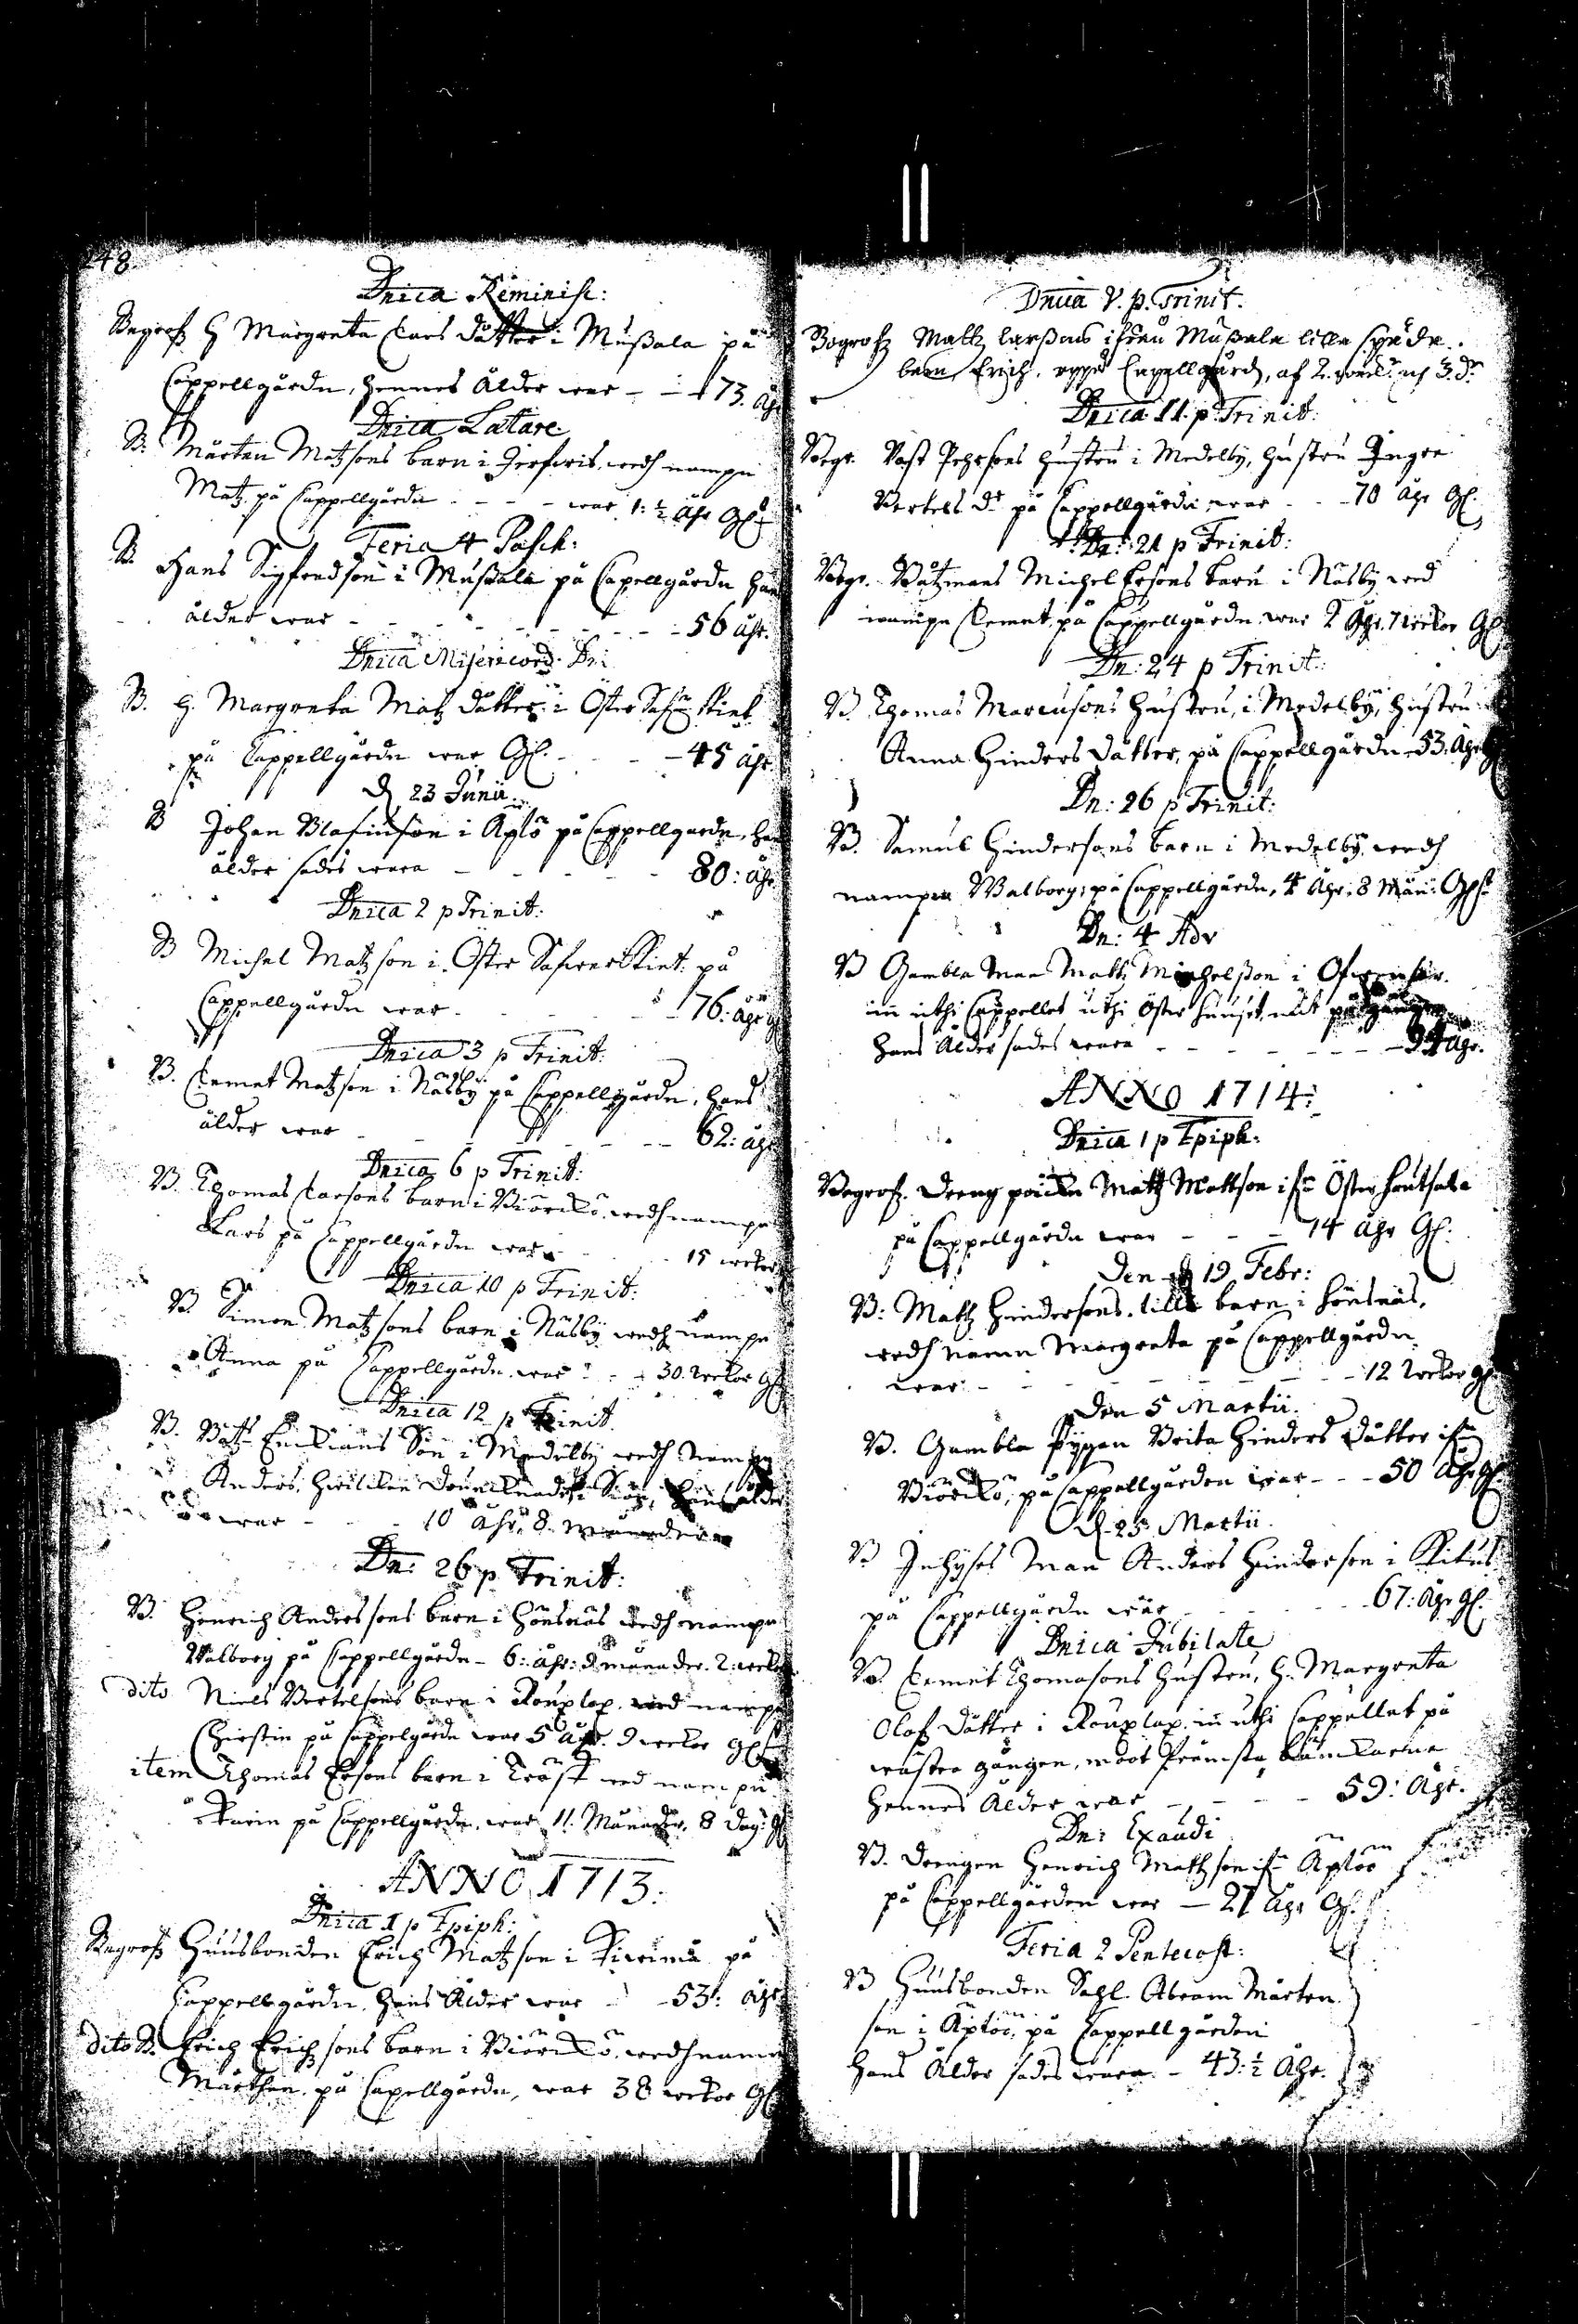 248.
Dnica Reminisc:
Begrofs H Margreta Clas dåtter i Mußala på
Cappellgårdn, hennes Ålder war - - 73. åhr
Dnica Lætare
B. Mårten Matzsons barn i wedh nampn
Matz på Cappellgårdn - - - war 1: ½ åhr Gl
Feria 4 Pasch:
B. Hans Sigfredson i Mußala på Capellgårdn hans
ålder war - - - - - - 56 åhr.
Dnica Misericord: Dni
B. H. Margreta Matz dåtter i Öster
på Cappellgårdn war Gl. - - 45 åhr
D 23 Junii
B Johan Blasiuson i Äplö på Cappellgardn, hans
ålder sades wara - - - - 80: åhr
Dnica 2 p Trinit:
B Michel Matzson i Öster på
Cappellgårdn war - - - 76: åhr gl
Dnica 3 p Trinit:
B. Clemet Matzson i Näsby på Cappellgårdn, hans
ålder war - - - - - 62: åhr
Dnica 6 p Trinit:
B. Thomas Larsons barn i Biörckö wedh nampn
Lars på Cappellgårdn war - - 15 wekor
Dnica 10 p Trinit:
B. Simon Matzsons barn i Näsby wedh nampn
Anna på Cappellgårdn war - - 30. wekor gl
Dnica 12 p Trinit.
B. Båtz Son i Medelby wedh nampn
Anders, hwilcken Siön, hans ålder
war - - - 10 åhr, 8. månader
Dn: 26 p Trinit:
B. Henrich Anderssons barn i Hönsnäs wedh nampn
Walborg på Cappellgårdn - 6: åhr: 9 månader. 2: wekor
dito Niels Bertelsons barn i Rouxlax wed nampn
Chirstin på Cappelgårdn war 5 åhr. 9 wekor gl
item Thomas Ersons barn i Träsk wed nampn
Karin på Cappellgårdn, war 11. Månader, 8 dag: gl
ANNO 1713:
Dnica 1 p Epiph:
Begrofs Huusbonden Erich Matzson i Kivimå på
Cappellgårdn, hans Ålder war - - 53: åhr
dito B. Erich Erichsons barn i Biörckö wedh namn
Mårthen på Capellgårdn, war 38 wekor gl
Dnica V. p. Trinit.
Begrofs Matz Larßons ifrån Mußala lilla späda
barn Erich. oppå Capellgård, af 2. och 3. d.
Dnica 11. p Trinit:
Begr. Pehrsons hustru i Medelby, hustru Ingre
Bertels dr på Cappellgårdn war - - 70 åhr Gl.
Dn: 21 p Trinit:
Begr. Båtzmans Michel Ersons barn i Näsby wed
nampn Clemet på Cappellgårdn war 2 åhr. 7 wekor Gl
Dn: 24 p Trinit:
B. Thomas Marcusons hustru, i Medelby, hustru
Anna Hinders dåtter, på Cappellgårdn - 53. åhr
Dn: 26 p Trinit:
B. Samuel Hindersons barn i Medelby wedh
nampn Walborg, på Cappellgårdn, 4 åhr. 8 Mån: Gl
Dn: 4 Adv
B Gambla Man Matz Michelßon i
in uthi Cappellet uthi Öster
hans ålder sades wara - - - - åhr.
ANNO 1714:
Dnica 1 p Epiph:
Begrof. Dreng poicken Matz Mattson ifrn Österhoutsala
på Cappellgårdn war - - - 14 åhr Gl.
Den 19 Febr:
B: Matz Hindersons. lilla barn i Hönsnäs,
wedh namn Margreta på Cappellgårdn
war - - - - - - 12 wekor gl
Den 5 Martii.
B. Gambla Pygan Brita Hinders dåtter ifrn
Biörckö, på Cappellgården war - - 50 åhr gl.
D. 25 Martii.
B Inhyses Man Anders Hinderson i
på Cappellgårdn war - - 67: åhr gl.
Dnica Jubilate
B Clemet Thomasons hustru, H. Margreta
Olofs dåtter i Rouxlax in uthi Cappellet på
wästra gången, mot främsta bänckarne
hennes Ålder war - - - 59: åhr.
Dn: Exaudi
B. Drengen Henrich Matzson ifrn Äplöö
på Cappellgården war - 21 åhr Gl.
Feria 2 Pentecost:
B Huusbonden Sahl. Abram Mårten
son i Äplöö, på Cappellgården
hans Ålder sades wara - 43: ½ åhr.